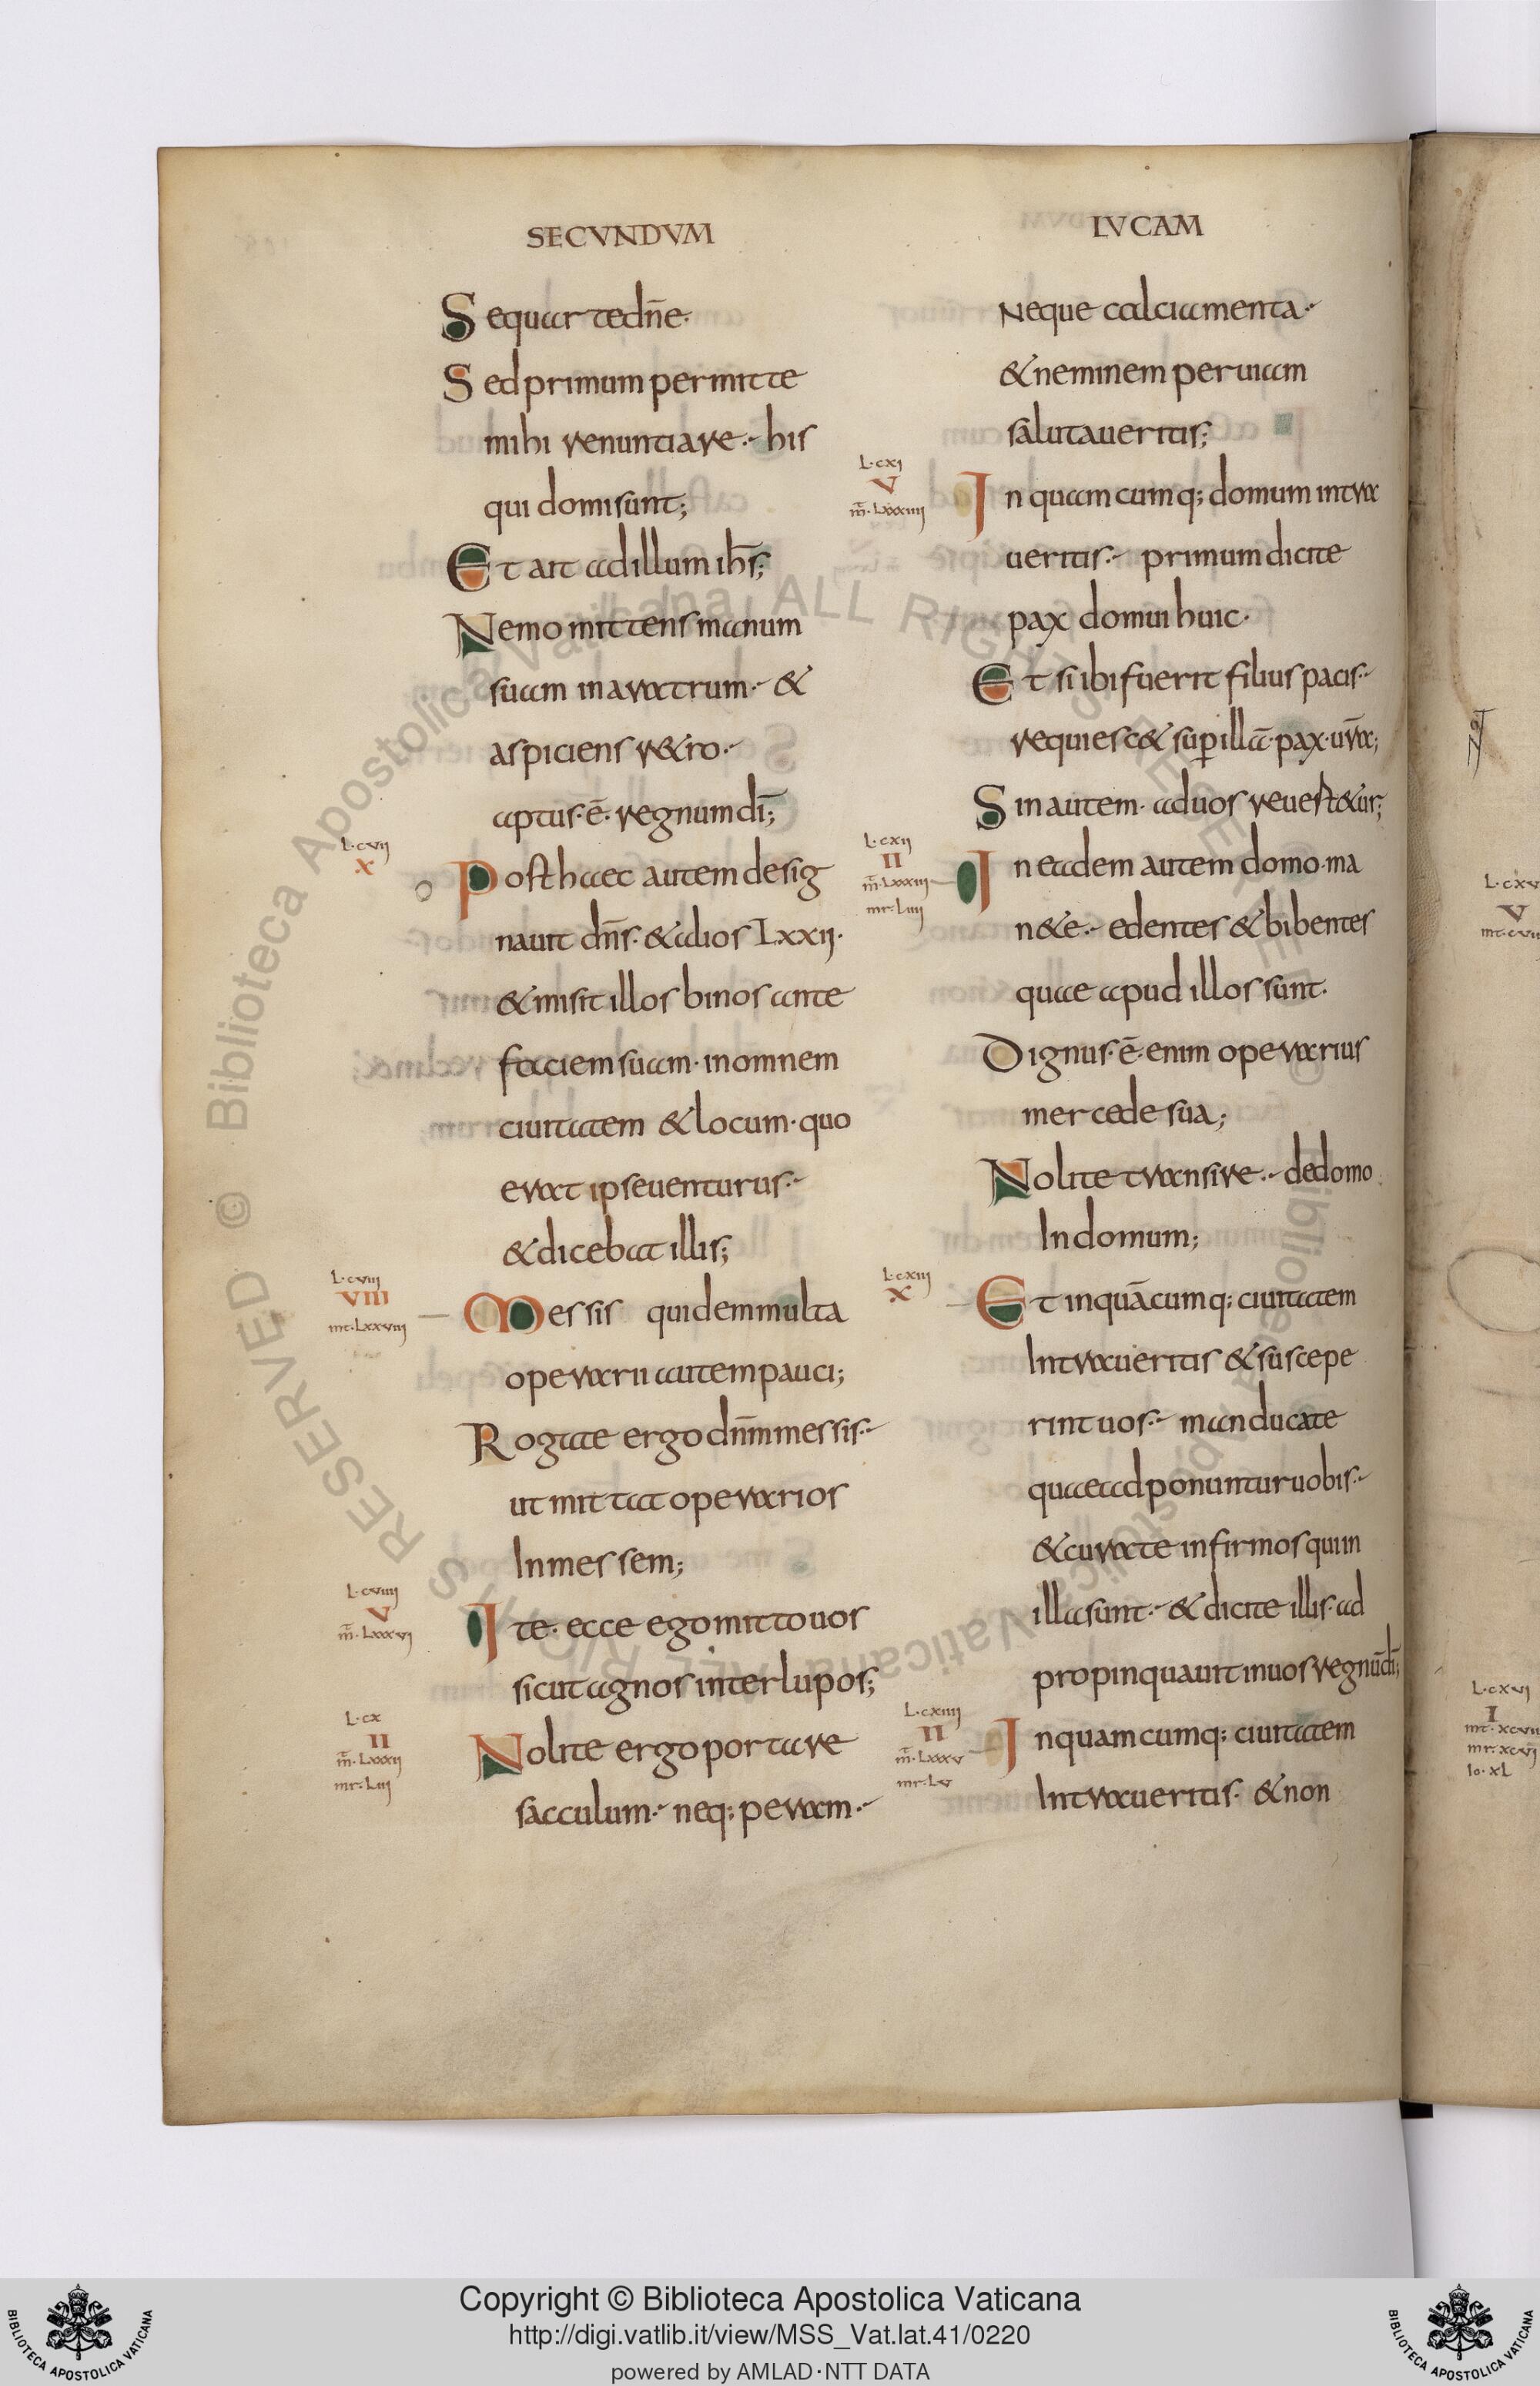 SECVNDVM
Sequar te dn̄e·
Sed primum permitte
mihi renuntiare·- his
qui domi sunt;
Et ait ad illum ih̄s;
Nemo mittens manum
suam in aratrum·- &
aspiciens r&ro·-
aptus·ē·regnum dī;
L·cvij
X
Post haec autem desig
nauit dn̄s·& alios Lxxij·
& misit illos binos ante
faciem suam·in omnem
ciuitatem & locum·quo
erat ipse uenturus·-
& dicebat illis;
L·cviij
VIII
mt·Lxxviij
Messis quidem multa
operarii autem pauci;
Rogate ergo dn̄m messis·-
ut mittat operarios
In messem;
L·cviiij
V
m̄·Lxxxvj
Ite·ecce ego mitto uos
sicut agnos inter lupos;
L·cx
II
m̄·Lxxxij
mr·Liij
Nolite ergo portare
sacculum·- neq; peram·-
LVCAM
Neque calciamenta·-
& neminem per uiam
salutaueritis;
L·cxj
V
m̄·Lxxxiiij
In quamcumq; domum intra
ueritis·- primum dicite
pax domui huic·
Et si ibi fuerit filius pacis·-
requiesc& sup illā·pax·ur̄a;
Sin autem·ad uos reuert&ur;
L·cxij
II
m̄·Lxxxiij
mr·Liiij
In eadem autem domo·ma
n&e·- edentes & bibentes
quae apud illos sunt·
Dignus·ē·enim operarius
mercede sua;
Nolite transire·- de domo
In domum;
L·cxiij
X
Et in quācumq; ciuitatem
Intraueritis & suscepe
rint uos·- manducate
quae adponuntur uobis·-
& curate infirmos qui in
illa sunt·- & dicite illis·ad
propinquauit in uos regnū dī;
L·cxiiij
II
m̄·Lxxxv
mr·Lv
In quamcumq; ciuitatem
Intraueritis·& non
L·cxv
V
mt·cvii
L·cxvj
I
mt·xcvii
mr·xcvj
Io·xL
© Biblioteca Apostolica Vaticana, ALL RIGHTS RESERVED
Copyright © Biblioteca Apostolica Vaticana
http://digi.vatlib.it/view/MSS_Vat.lat.41/0220
powered by AMLAD·NTT DATA
BIBLIOTECA APOSTOLICA VATICANA
BIBLIOTECA APOSTOLICA VATICANA